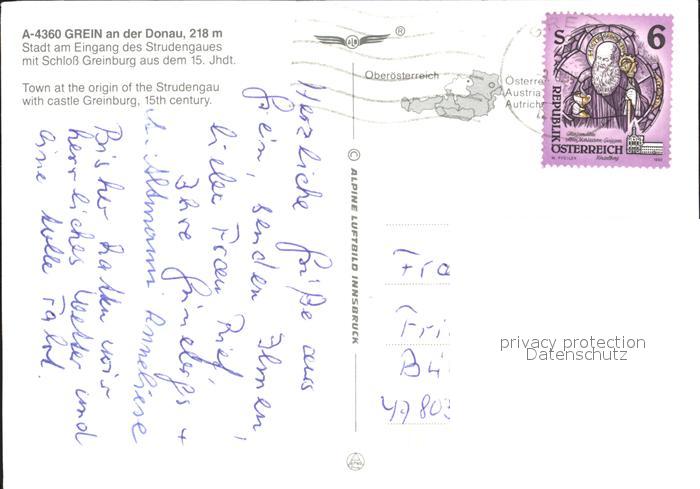 A-4360 GREIN an der Donau, 218 m
Stadt am Eingang des Strudengaues
mit Schloß Greinburg aus dem 15. Jhdt.
Town at the origin of the Strudengau
with castle Greinburg, 15th century.
Herzliche Grüße aus
Grein, senden Ihnen,
liebe Frau
Ihre +
Anneliese
Bisher hatten wir
herrliches Wetter und
eine tolle Fahrt.
© ALPINE LUFTBILD INNSBRUCK
®
Oberösterreich
Österre
Austria
Autrich
S 6
REPUBLIK
ÖSTERREICH
Fra
Fri
49803
privacy protection
Datenschutz